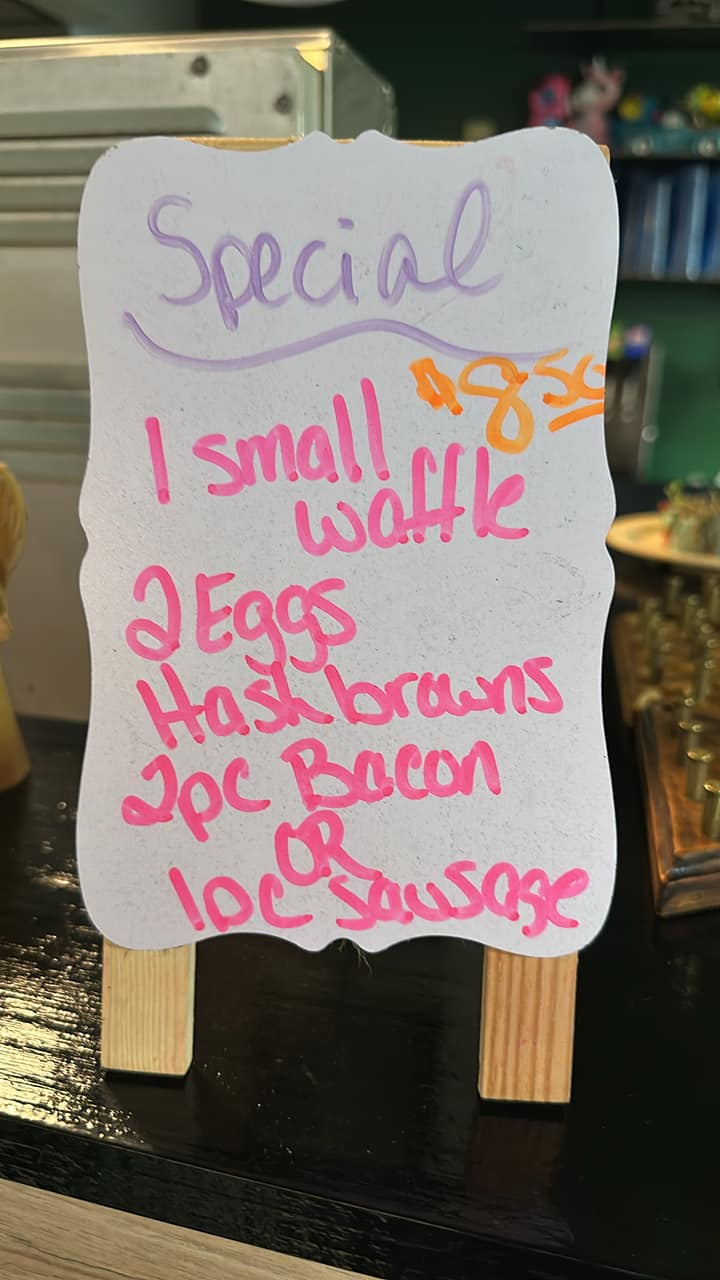 Special
$8.50
1 small
waffle
2 Eggs
Hashbrowns
2pc Bacon
OR
1pc sausage